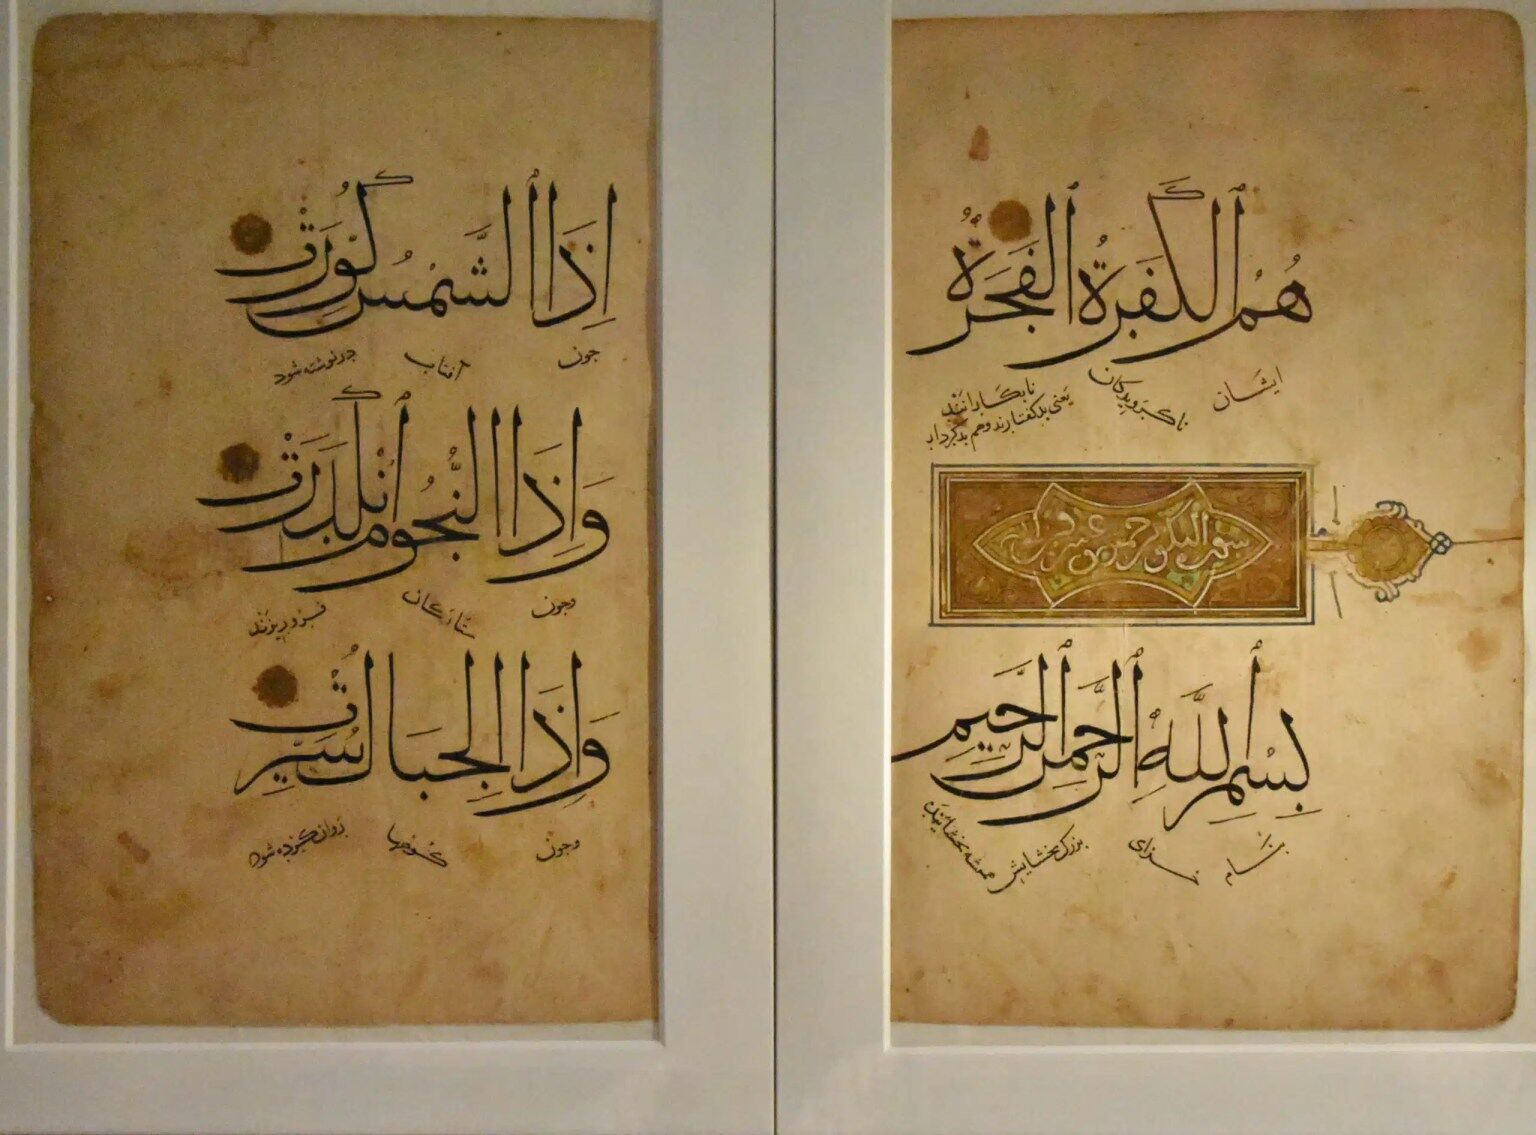 هُمُ الْكَفَرَةُ الْفَجَرَةُ
ایشان ناکرویدکان نابکارانند
یعنی بدکفتارند و هم بدکردار
بِسْمِ اللَّهِ الرَّحْمٰنِ الرَّحِيمِ
بنام خدای بزرک بخشایش همیشه بخشاینده
اِذَا الشَّمْسُ كُوِّرَتْ
جون آفتاب درنوشته شود
وَاِذَا النُّجُومُ انْكَدَرَتْ
وجون ستارکان فروریزند
وَاِذَا الْجِبَالُ سُيِّرَتْ
وجون کوهها روان کرده شود